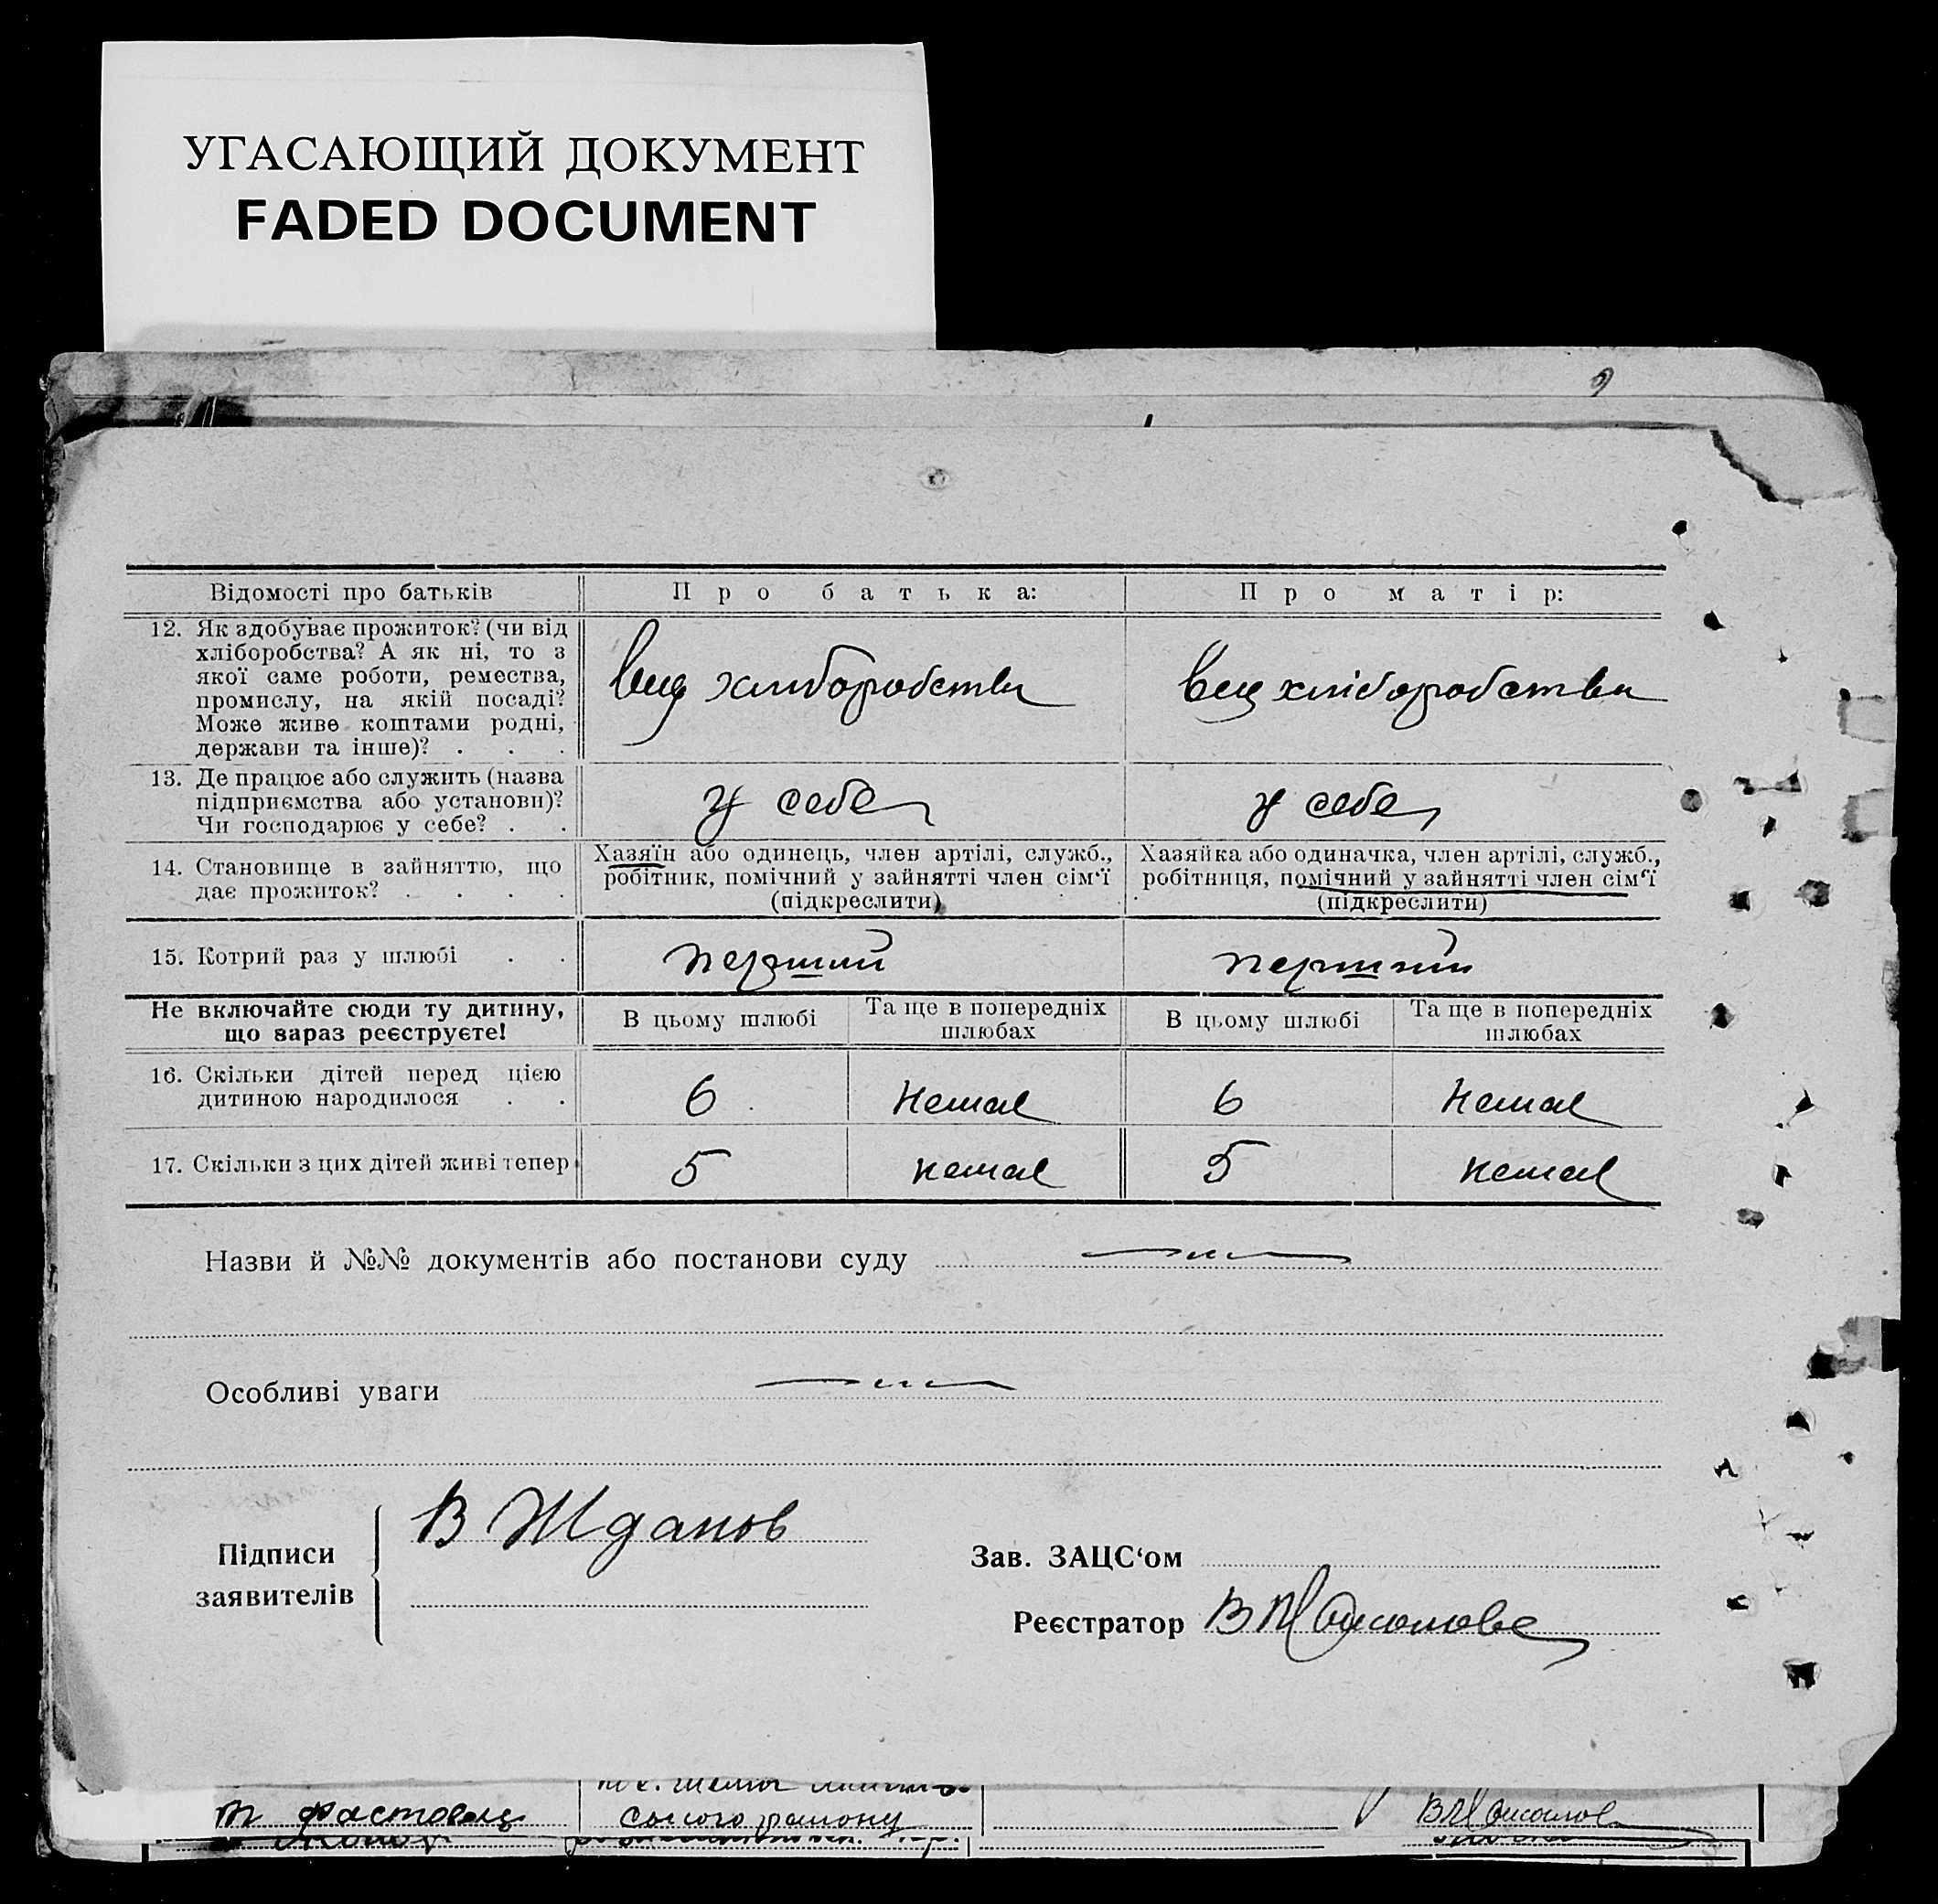 УГАСАЮЩИЙ ДОКУМЕНТ
FADED DOCUMENT
Відомості про батьків
Про батька:
Про матір:
12. Як здобуває прожиток? (чи від
хліборобства? А як ні, то з
якої саме роботи, ремества,
промислу, на якій посаді?
Може живе коштами родні,
держави та інше)? . . .
хліборобства
хліборобства
13. Де працює або служить (назва
підприємства або установи)?
Чи господарює у себе? . .
у себе
у себе
14. Становище в зайняттю, що
дає прожиток? . . . .
Хазяїн або одинець, член артілі, служб.,
робітник, помічний у зайнятті член сім‘ї
(підкреслити)
Хазяйка або одиначка, член артілі, служб.,
робітниця, помічний у зайнятті член сім‘ї
(підкреслити)
15. Котрий раз у шлюбі . .
перший
перший
Не включайте сюди ту дитину,
що зараз реєструєте!
В цьому шлюбі
Та ще в попередніх
шлюбах
В цьому шлюбі
Та ще в попередніх
шлюбах
16. Скільки дітей перед цією
дитиною народилося . .
6
Немає
6
Немає
17. Скільки з цих дітей живі тепер
5
немає
5
немає
Назви й №№ документів або постанови суду
Особливі уваги
Підписи
заявителів
В Жданов
Зав. ЗАЦС‘ом
Реєстратор
В
ського району